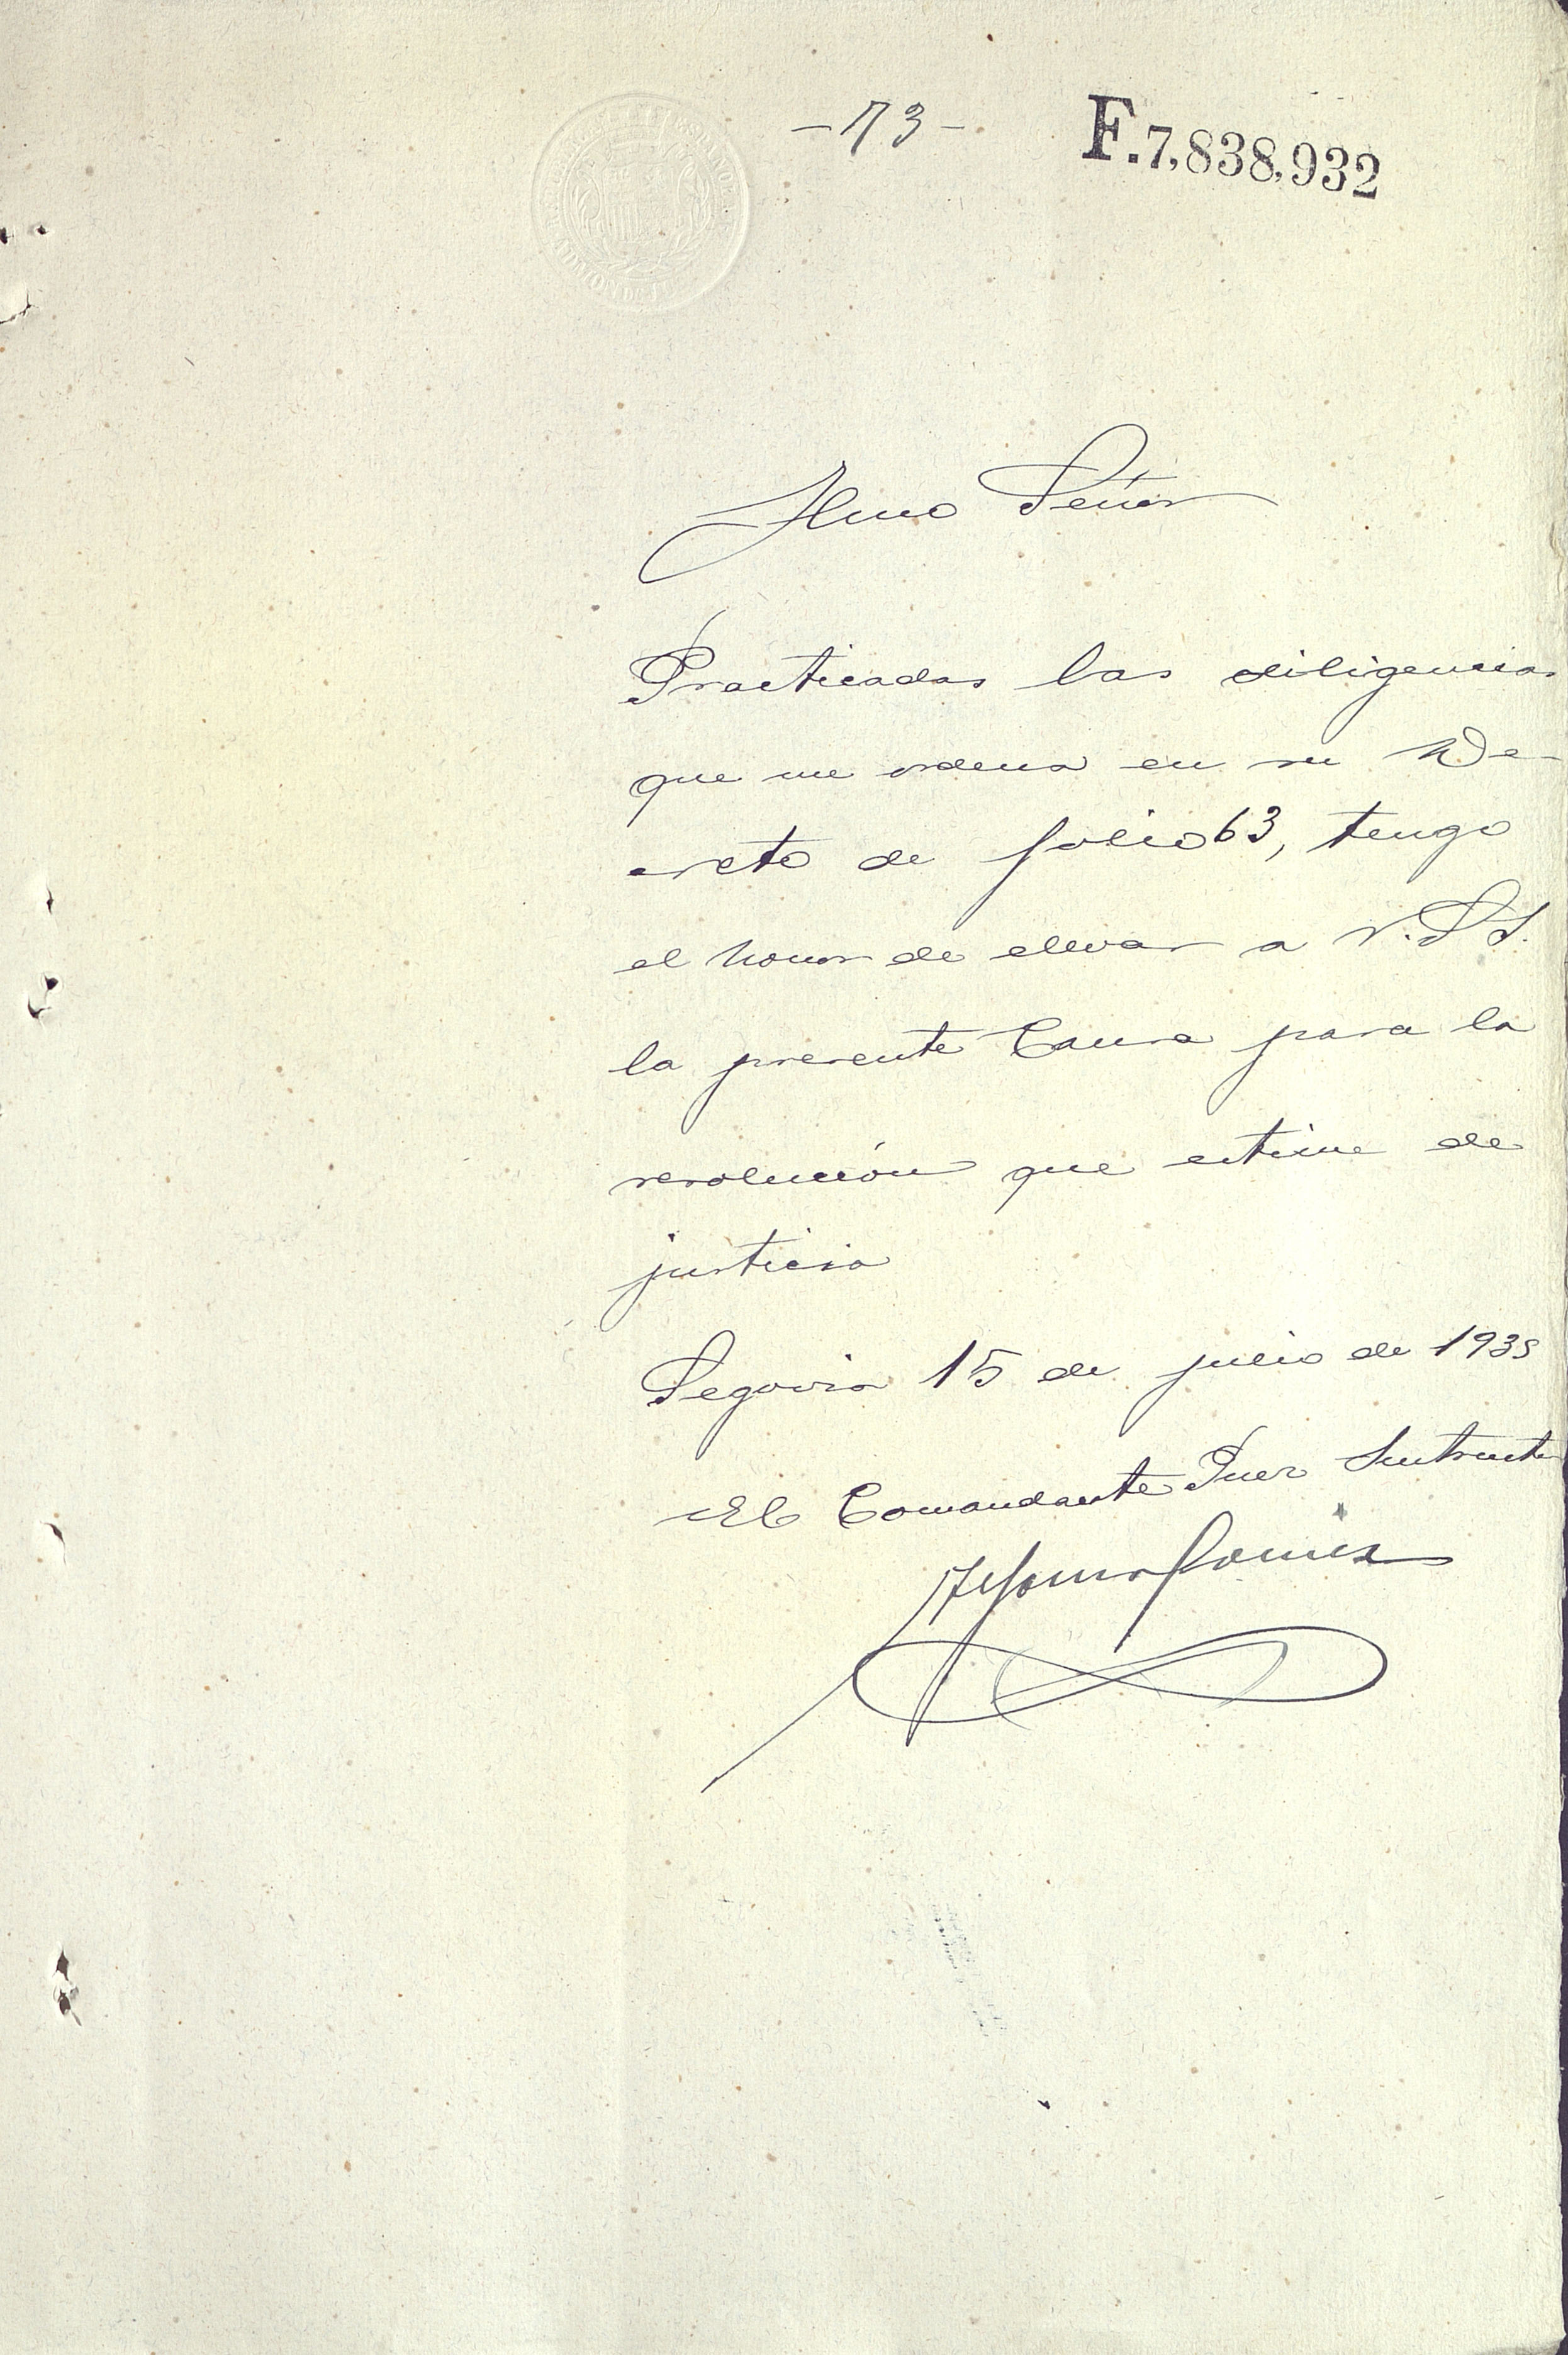 -73-
F.7,838,932
Ilmo Señor
Practicadas las diligencias
que me ordena en su De-
creto de folio 63, tengo
el honor de elevar a V.S.I.
la presente Causa para la
resolución que estime de
justicia
Segovia 15 de julio de 1935
El Comandante Juez Instructor